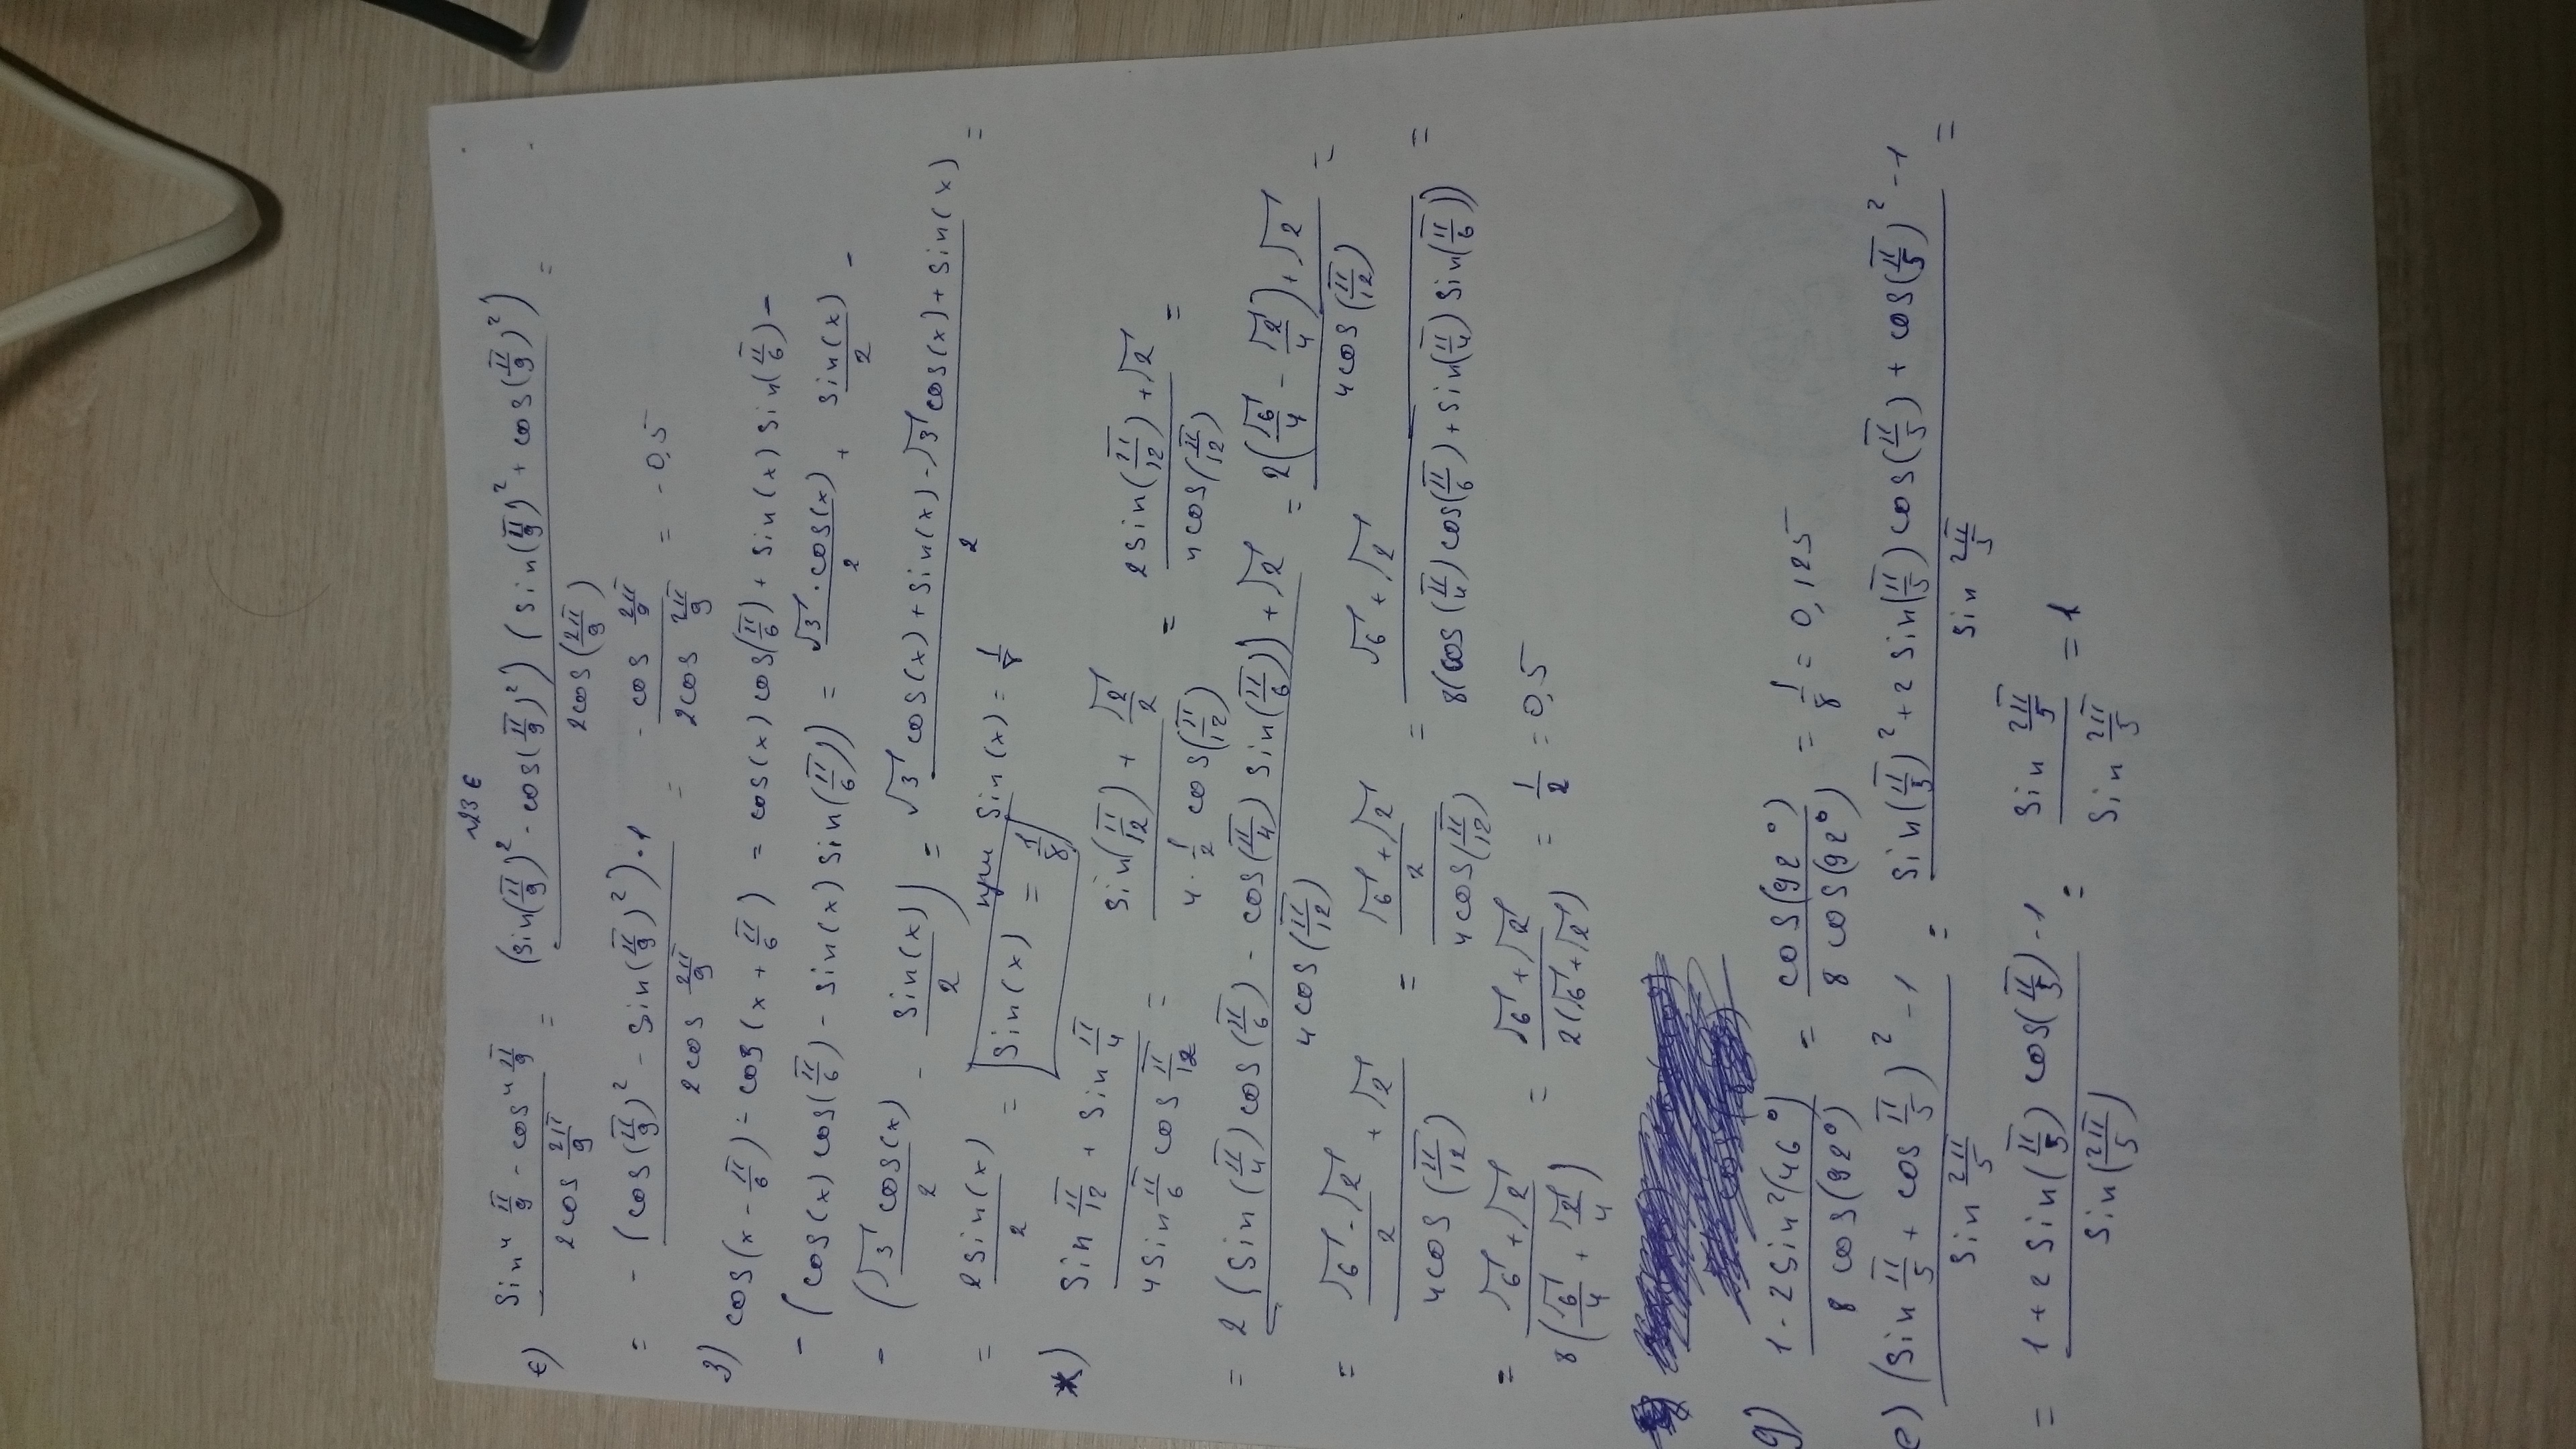 √23 є
є) (sin⁴ π/9 - cos⁴ π/9) / (2cos 2π/9) = ((sin(π/9)² - cos(π/9)²)(sin(π/9)² + cos(π/9)²)) / (2cos(2π/9)) =
= - ((cos(π/9)² - sin(π/9)²)·1) / (2cos 2π/9) = - (cos 2π/9) / (2cos 2π/9) = -0,5
з) cos(x - π/6) - cos(x + π/6) = cos(x) cos(π/6) + sin(x) sin(π/6) -
- (cos(x) cos(π/6) - sin(x) sin(π/6)) = (√3 · cos(x))/2 + sin(x)/2 -
- ((√3 cos(x))/2 - sin(x)/2) = (√3 cos(x) + sin(x) - √3 cos(x) + sin(x))/2 =
= 2sin(x)/2 = sin(x) = 1/8 при sin(x) = 1/8
ж) (sin π/12 + sin π/4) / (4sin π/6 cos π/12) = (sin(π/12) + √2/2) / (4 · 1/2 cos(π/12)) = (2sin(π/12) + √2) / (4cos(π/12)) =
= (2(sin(π/4) cos(π/6) - cos(π/4) sin(π/6)) + √2) / (4cos(π/12)) = (2(√6/4 - √2/4) + √2) / (4cos(π/12)) =
= ((√6 - √2)/2 + √2) / (4cos(π/12)) = ((√6 + √2)/2) / (4cos(π/12)) = (√6 + √2) / (8(cos(π/4) cos(π/6) + sin(π/4) sin(π/6))) =
= (√6 + √2) / (8(√6/4 + √2/4)) = (√6 + √2) / (2(√6 + √2)) = 1/2 = 0,5
g) (1 - 2sin²(46°)) / (8 cos(92°)) = cos(92°) / (8 cos(92°)) = 1/8 = 0,125
e) ((sin π/5 + cos π/5)² - 1) / (sin 2π/5) = (sin(π/5)² + 2sin(π/5) cos(π/5) + cos(π/5)² - 1) / (sin 2π/5) =
= (1 + 2sin(π/5) cos(π/5) - 1) / (sin(2π/5)) = (sin 2π/5) / (sin 2π/5) = 1